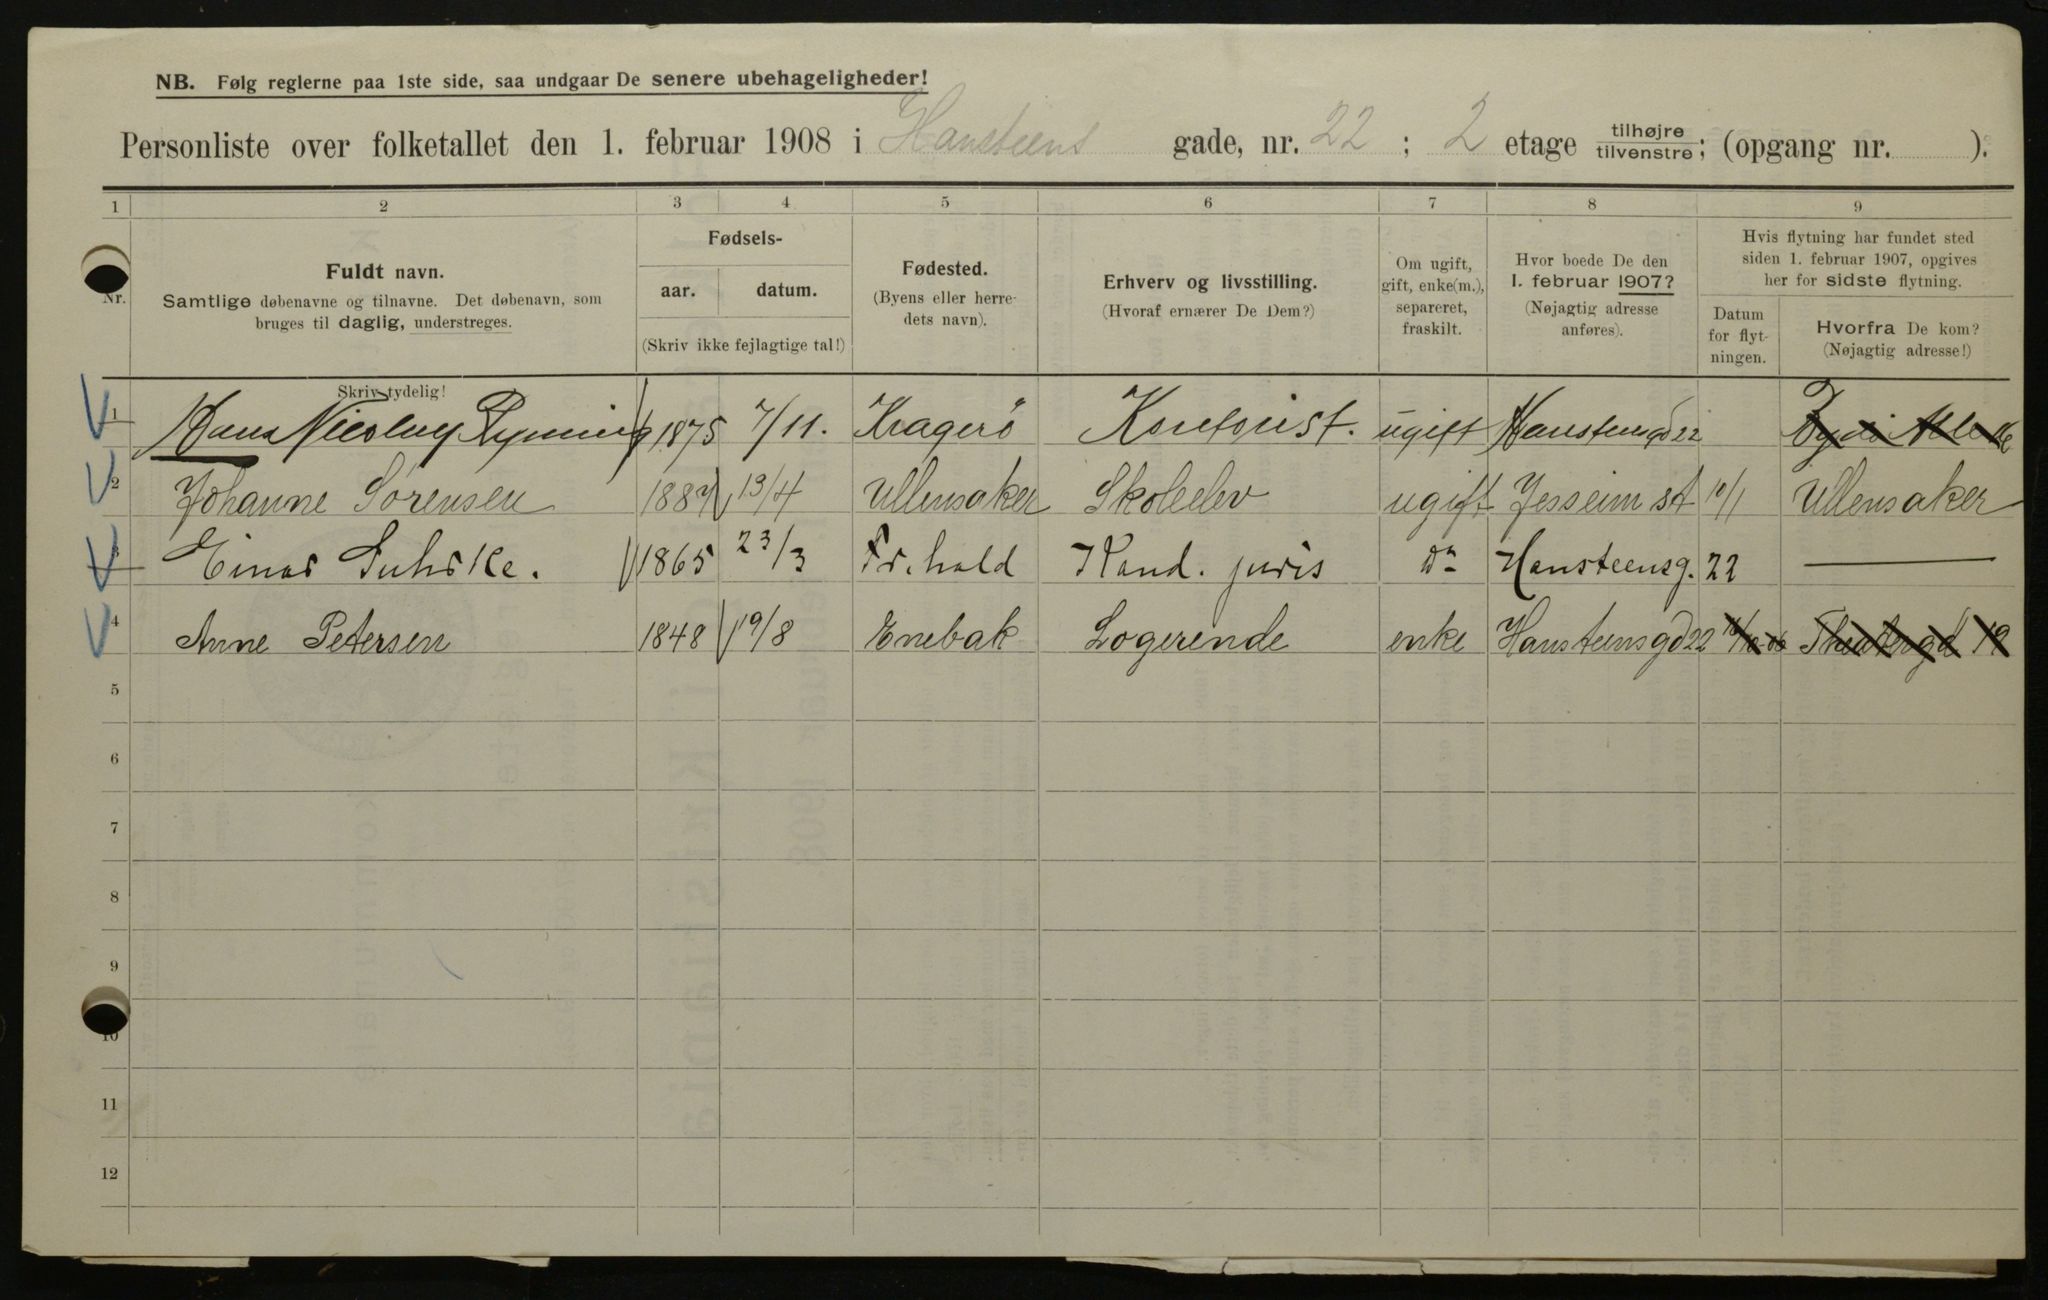 NB. Følg reglerne paa 1ste side, saa undgaar De senere ubehageligheder!
Personliste over folketallet den 1. februar 1908 i Hansteens gade, nr. 22; 2 etage tilhøjre / tilvenstre; (opgang nr. ).
1 2 3 4 5 6 7 8 9
Nr.
Fuldt navn.
Samtlige døbenavne og tilnavne. Det døbenavn, som
bruges til daglig, understreges.
Skriv tydelig!
Fødsels-
aar. datum.
(Skriv ikke fejlagtige tal!)
Fødested.
(Byens eller herre-
dets navn).
Erhverv og livsstilling.
(Hvoraf ernærer De Dem?)
Om ugift,
gift, enke(m.),
separeret,
fraskilt.
Hvor boede De den
1. februar 1907?
(Nøjagtig adresse
anføres).
Hvis flytning har fundet sted
siden 1. februar 1907, opgives
her for sidste flytning.
Datum
for flyt-
ningen.
Hvorfra De kom?
(Nøjagtig adresse!)
1 Hans Nicolay Rynning 1875 7/11. Kragerö Kontorist. ugift Hansteensgd 22
2 Johanne Sørensen 1887 13/4 Ullensaker Skoleelev ugift Jesseim st Ullensaker
3 Einar Suhrke. 1865 23/3 Fr.hald Kand. juris do Hansteensg. 22 —
4 Anne Petersen 1848 19/8 Enebak Logerende enke Hansteensgd 22 Theatergd 19
5
6
7
8
9
10
11
12